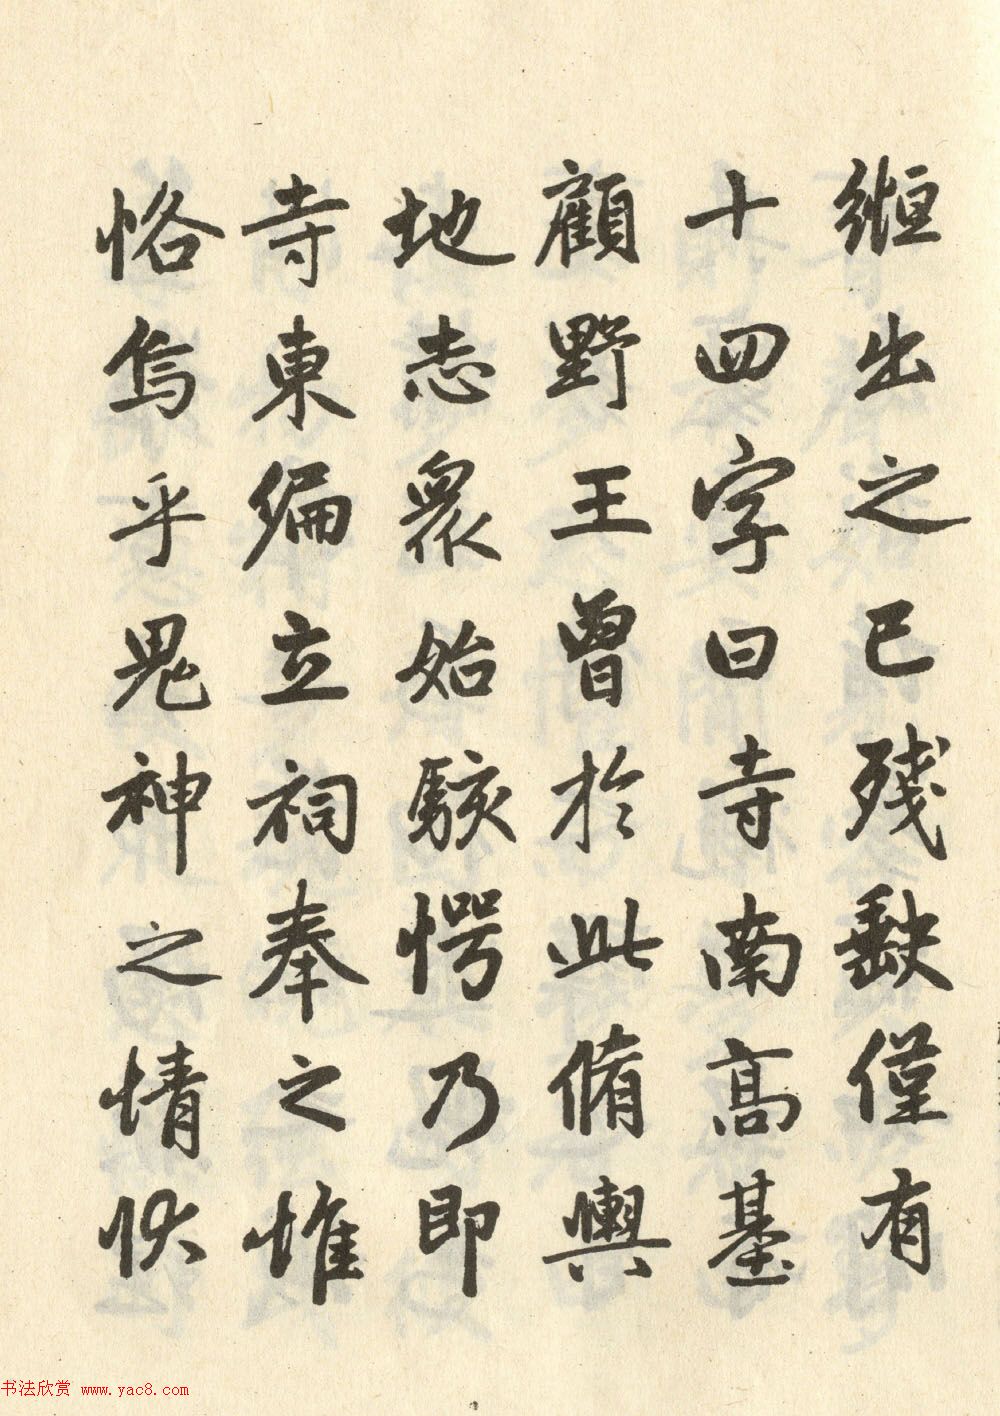 縆出之已殘缺僅有
十四字曰寺南高基
顧野王曾於此脩輿
地志衆始駭愕乃即
寺東偏立祠奉之惟
恪烏乎鬼神之情狀
书法欣赏 www.yac8.com